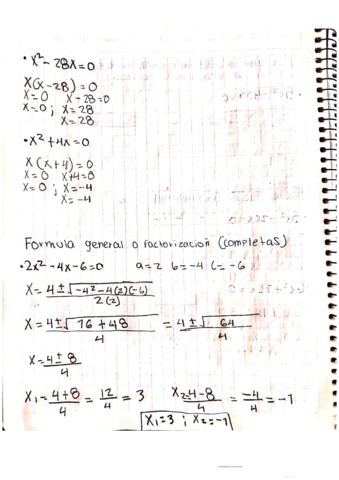 • x² - 28x = 0
x(x - 28) = 0
x = 0   x - 28 = 0
x = 0 ; x = 28
x = 28
• x² + 4x = 0
x(x + 4) = 0
x = 0   x + 4 = 0
x = 0 ; x = -4
x = -4
Formula general o factorización (completas)
• 2x² - 4x - 6 = 0   a = 2   b = -4   c = -6
x = 4 ± √-4² - 4(2)(-6) / 2(2)
x = 4 ± √16 + 48 / 4 = 4 ± √64 / 4
x = 4 ± 8 / 4
x₁ = 4 + 8 / 4 = 12 / 4 = 3   x₂ = 4 - 8 / 4 = -4 / 4 = -1
x₁ = 3 ; x₂ = -1